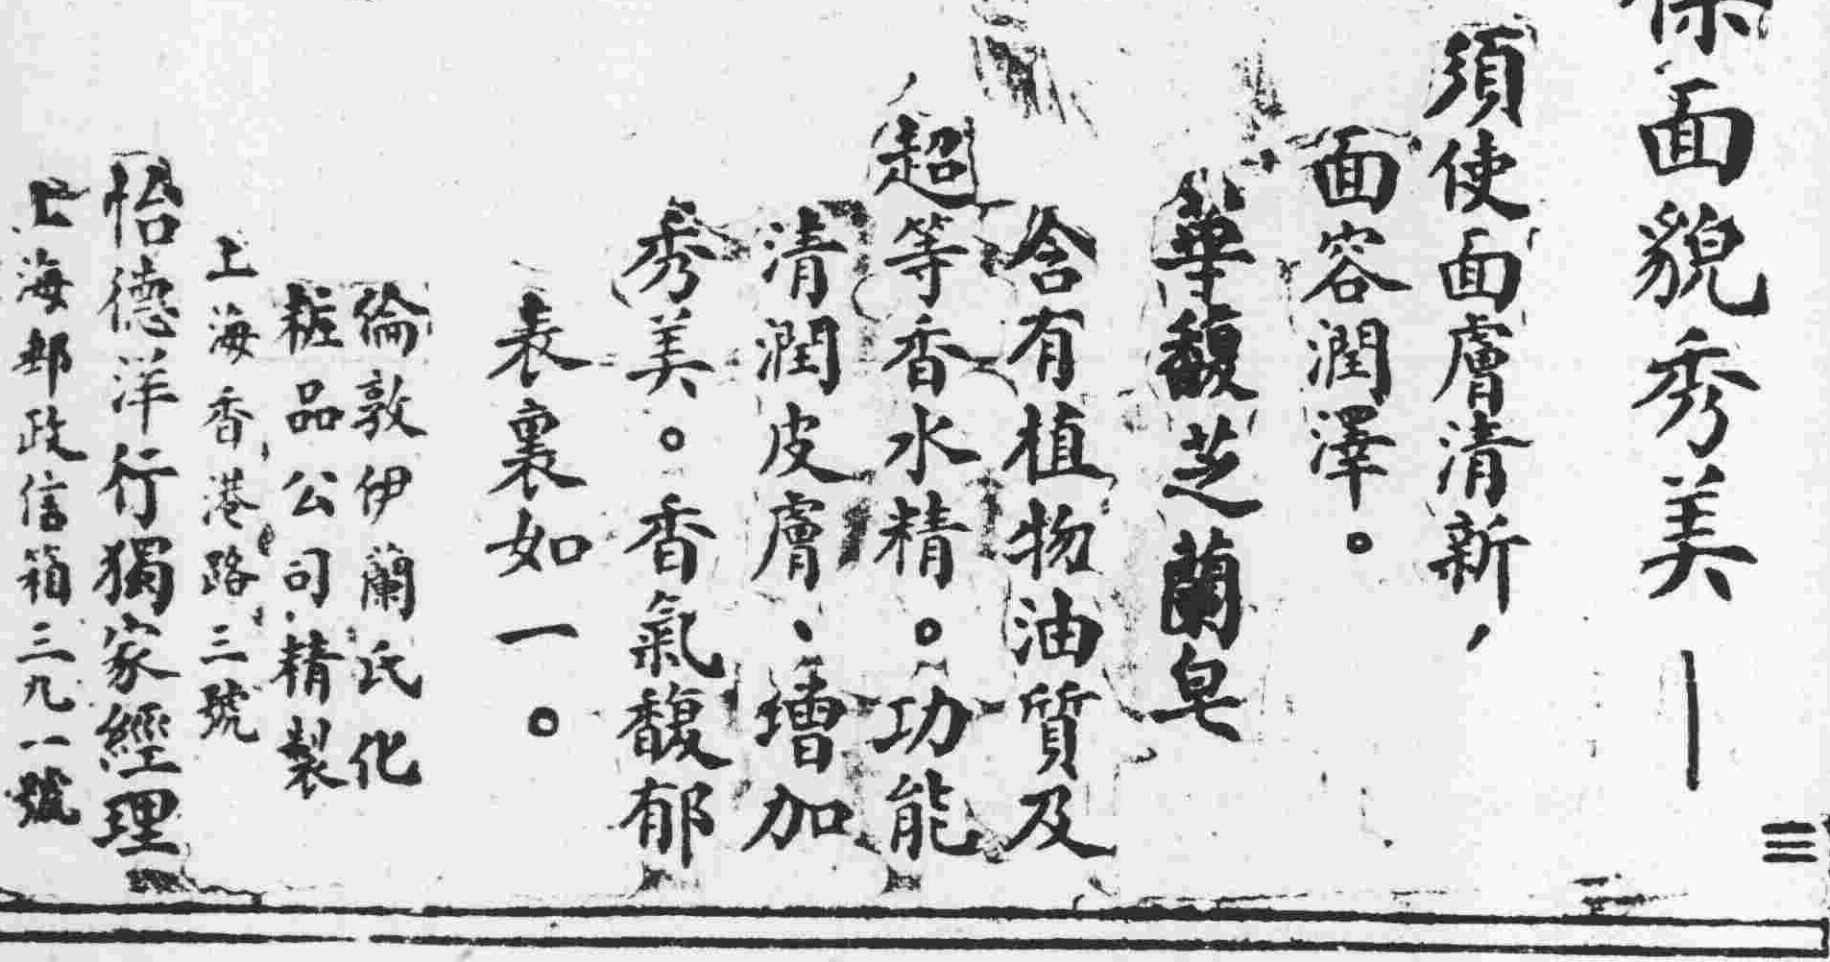 保面貌秀美—
須使面膚清新，
面容潤澤。
華馥芝蘭皂
含有植物油質及
超等香水精。功能
清潤皮膚、增加
秀美。香氣馥郁
表裏如一。
倫敦伊蘭氏化
粧品公司精製
上海香港路三號
怡德洋行獨家經理
上海郵政信箱三九一號
三